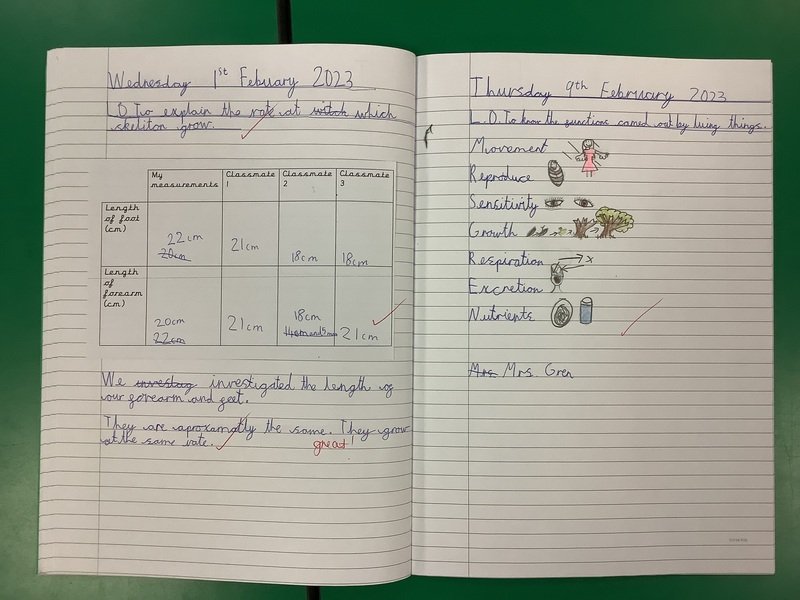 Wednesday 1st Febuary 2023
L.O. To explain the rate at witch which
skeliton grow.
My measurements
Classmate 1
Classmate 2
Classmate 3
Length of foot (cm)
22cm
20cm
21cm
18cm
18cm
Length of forearm (cm)
20cm
22cm
21cm
18cm
14cm and 5mm
21cm
We investag investigated the length of
our forearm and feet.
They are aproxamatly the same. They grow
at the same rate.
great!
Thursday 9th February 2023
L.O. To know the functions carried out by living things.
Movement
Reproduce
Sensitivity
Growth
Respiration
x
Excretion
Nutrients
Mrs Mrs. Gren